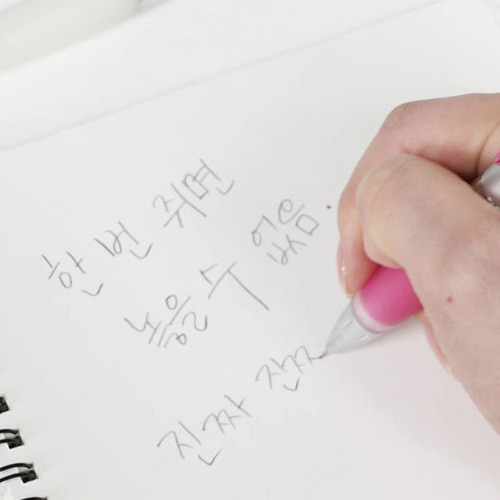 한 번 쥐면
놓을 수 없음.
진짜